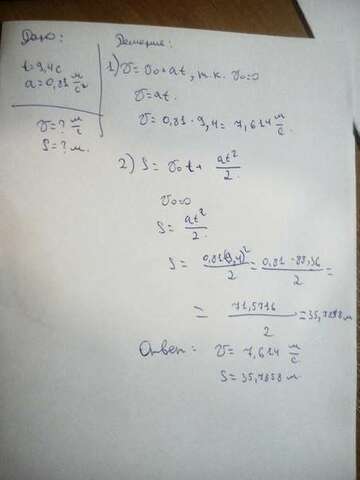 Дано:
t=9,4 с
a=0,81 м/с²
v=? м/с
S=? м.
Решение:
1) v=v₀+at, т.к. v₀=0
v=at.
v=0,81·9,4=7,614 м/с.
2) S= v₀t+ at²/2.
v₀=0
S= at²/2.
S= 0,81(9,4)²/2=0,81·88,36/2=
= 71,5716/2=35,7858 м
Ответ: v=7,614 м/с
S=35,7858 м